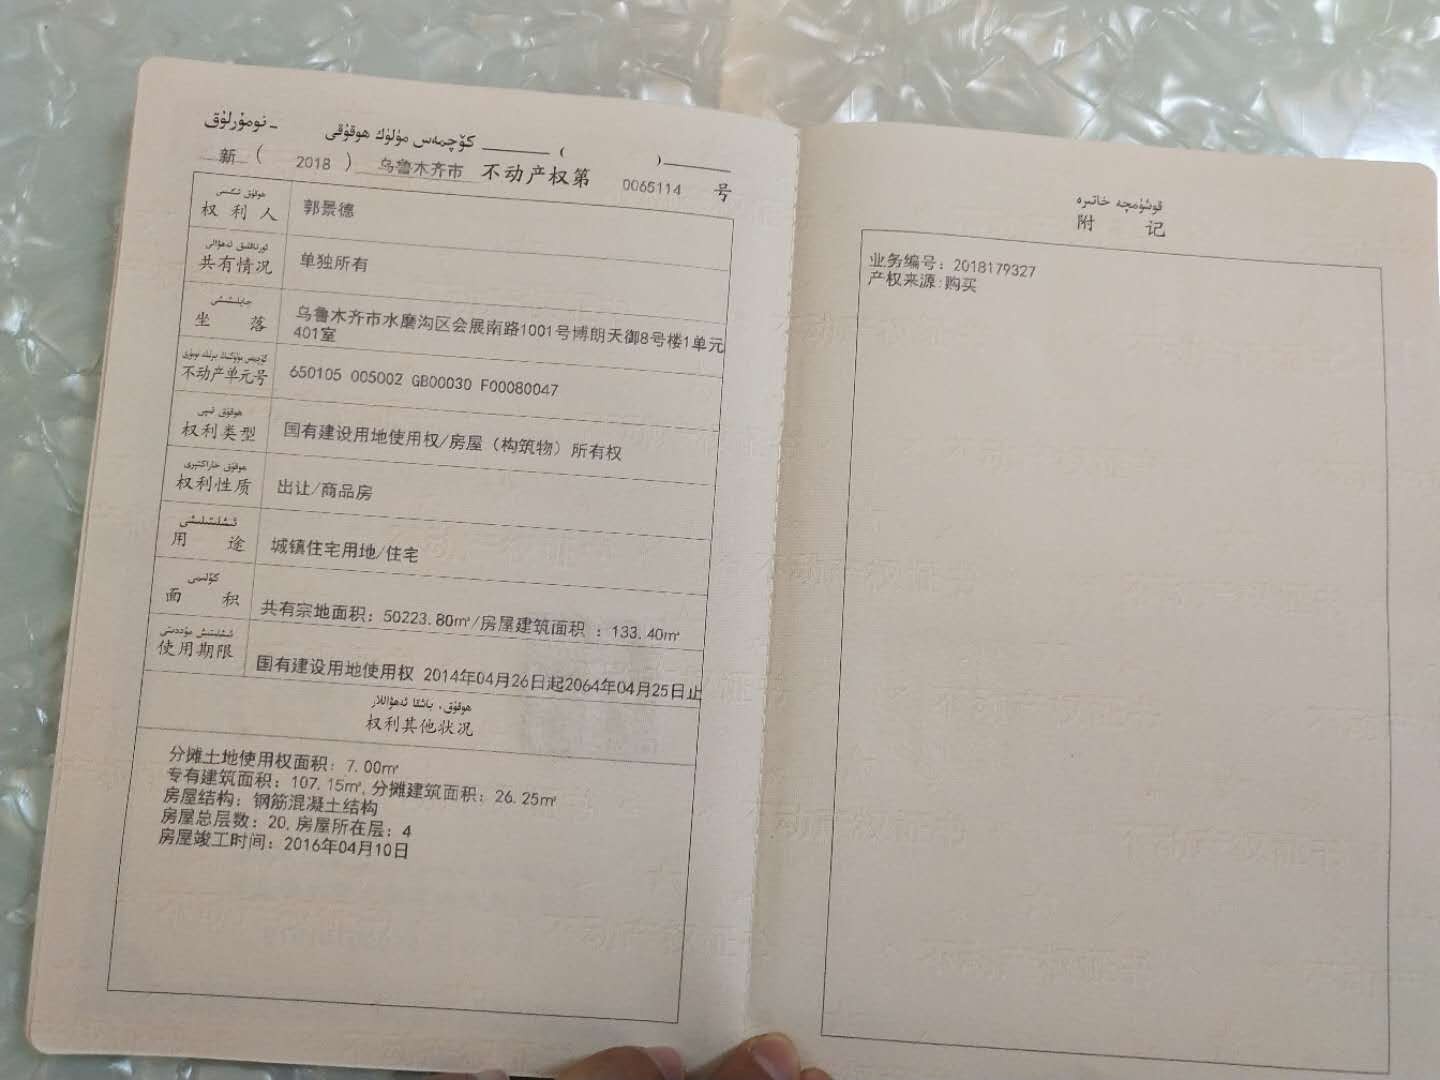 كۆچمەس مۈلۈك ھوقۇقى ______ ( )______ - نومۇرلۇق
新 ( 2018 ) 乌鲁木齐市 不动产权第 0065114 号
ھوقۇق ئىگىسى
权利人 郭景德
ئورتاقلىق ئەھۋالى
共有情况 单独所有
جايلىشىشى
坐落 乌鲁木齐市水磨沟区会展南路1001号博朗天御8号楼1单元
401室
كۆچمەس مۈلۈكنىڭ بىرلىك نومۇرى
不动产单元号 650105 005002 GB00030 F00080047
ھوقۇق تىپى
权利类型 国有建设用地使用权/房屋（构筑物）所有权
ھوقۇق خاراكتېرى
权利性质 出让/商品房
ئىشلىتىلىشى
用途 城镇住宅用地/住宅
كۆلىمى
面积 共有宗地面积：50223.80㎡/房屋建筑面积 ：133.40㎡
ئىشلىتىش مۇددىتى
使用期限 国有建设用地使用权 2014年04月26日起2064年04月25日止
ھوقۇق، باشقا ئەھۋاللار
权利其他状况
分摊土地使用权面积：7.00㎡
专有建筑面积：107.15㎡,分摊建筑面积：26.25㎡
房屋结构：钢筋混凝土结构
房屋总层数：20,房屋所在层：4
房屋竣工时间：2016年04月10日
قوشۇمچە خاتىرە
附记
业务编号：2018179327
产权来源:购买